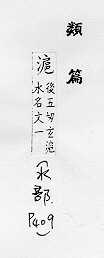 類篇
滬後五切玄滬
水名文一
(水部.
P409)